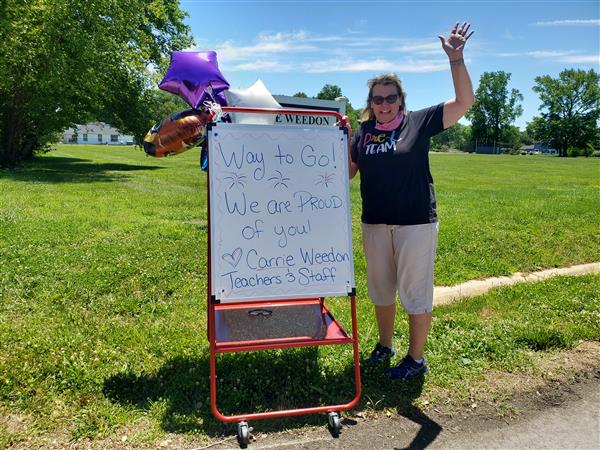 E WEEDON
Way to Go!
We are PROUD
of you!
♡ Carrie Weedon
Teachers & Staff
TEAM